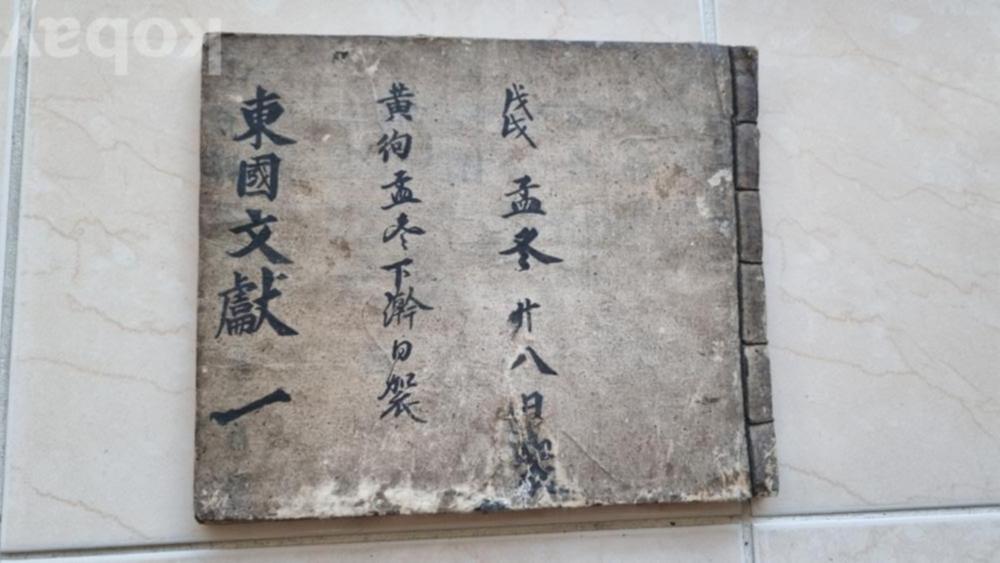 戊戌 孟冬 廿八日
黄狗孟冬下澣日
東國文獻 一
kobay